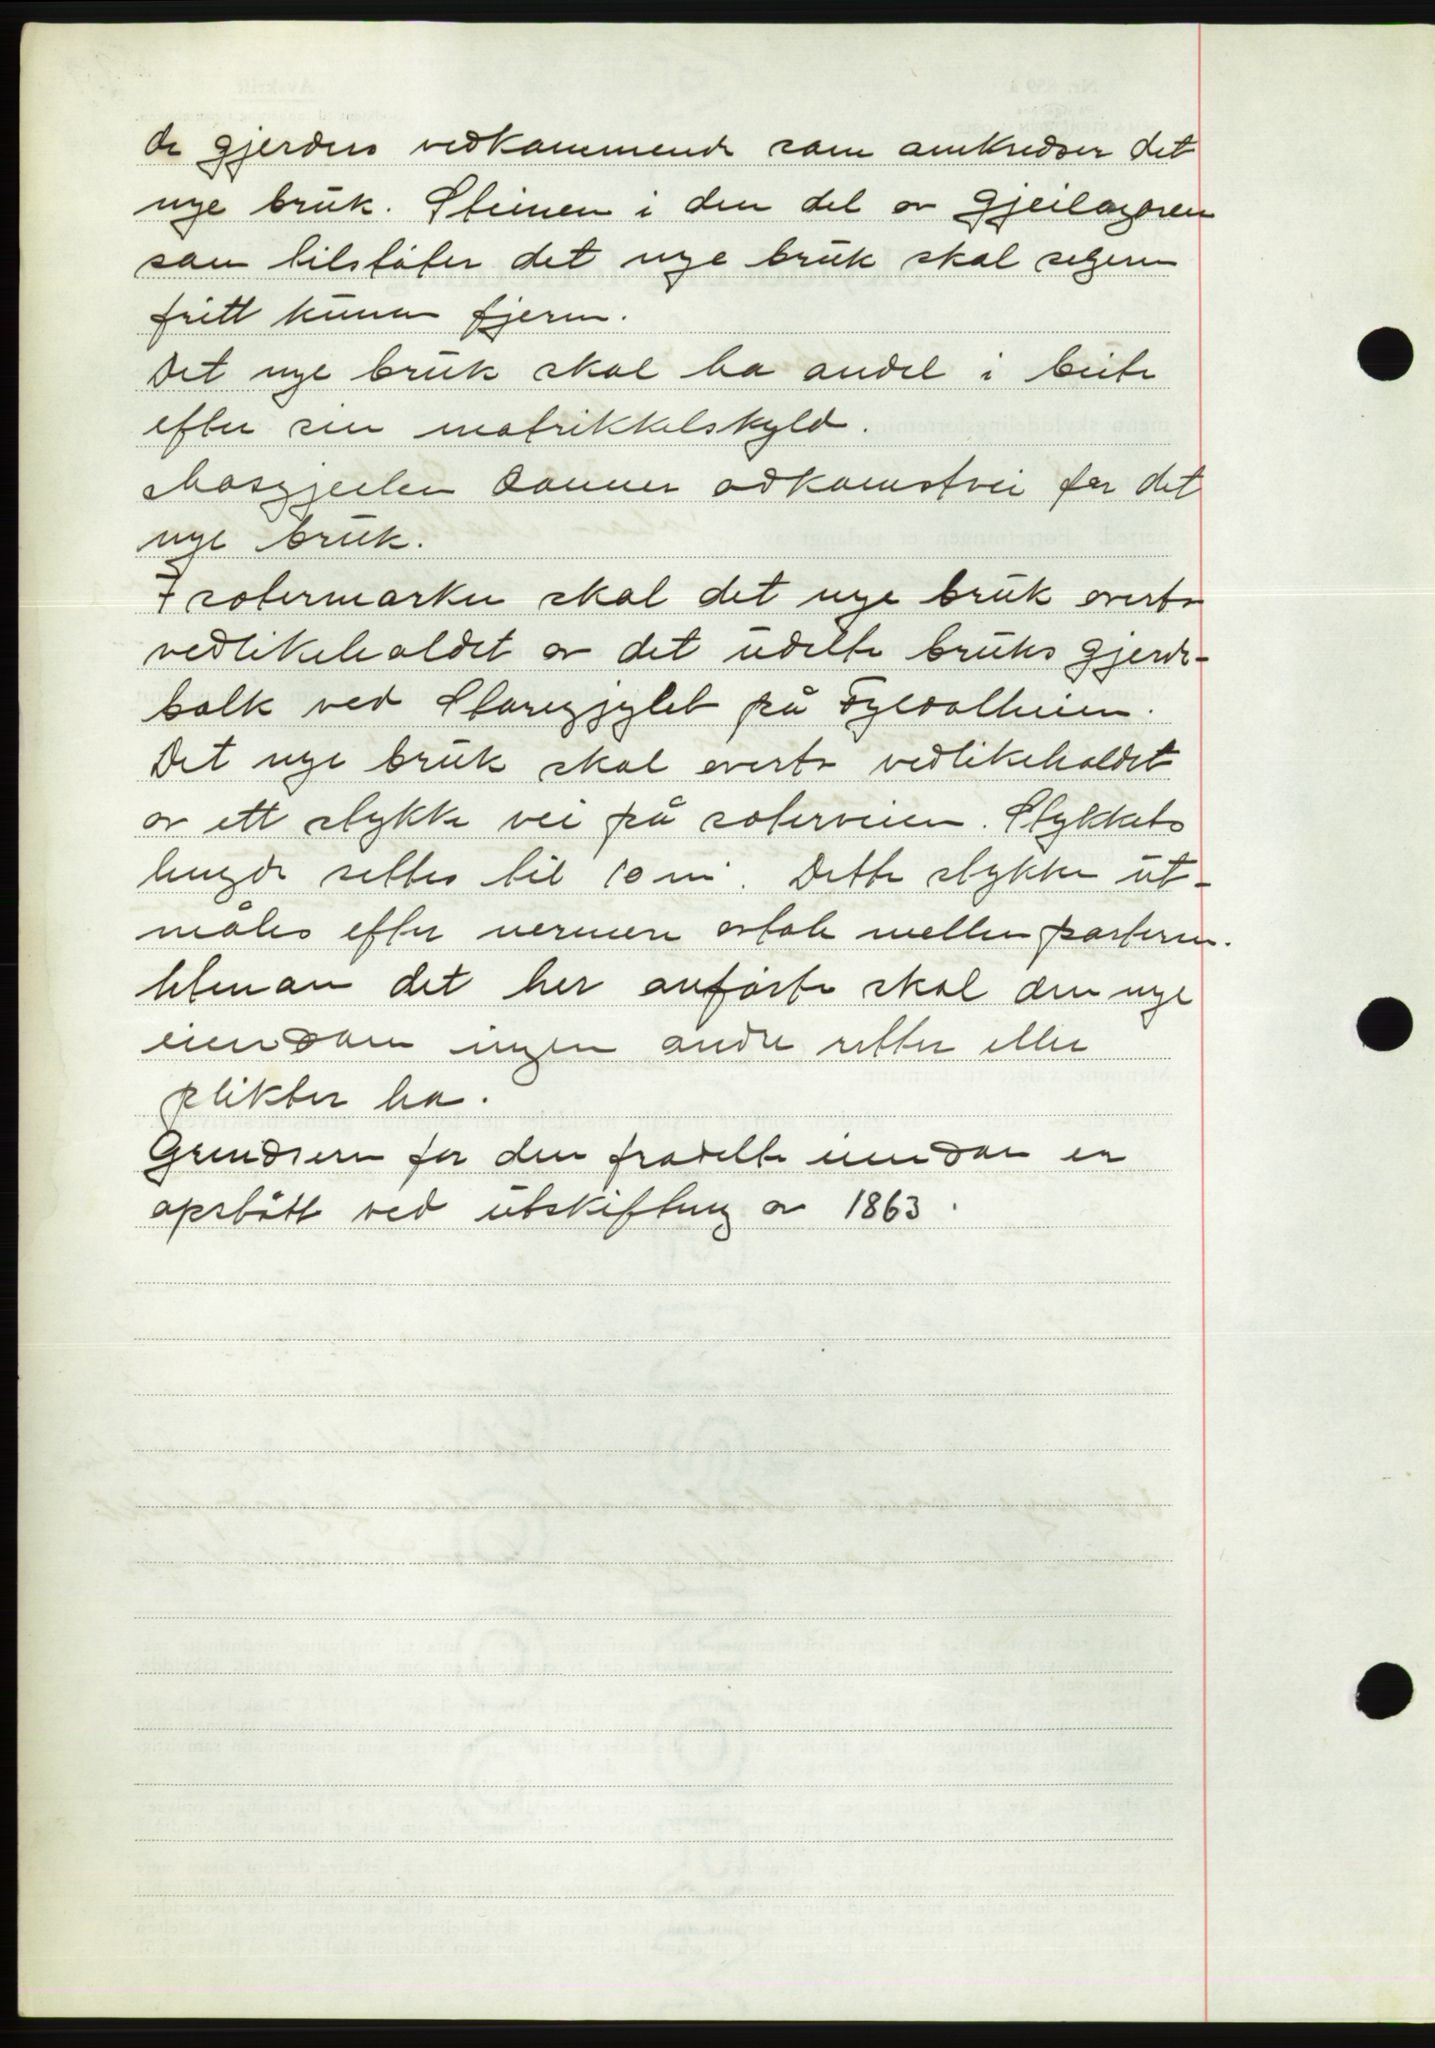 de gjerders vedkommende som omkredser det
nye brŭk. Steinen i den del av gjeilagaren
som tilstöter det nye brŭk skal selgeren
fritt kŭnne fjerne.
Det nye brŭk skal ha andel i beite
efter sin matrikkelskyld.
danner adkomstvei for det
nye brŭk.
I setermarken skal det nye brŭk overta
vedlikeholdet av det ŭdelte brŭks gjerde-
balk ved på
Det nye brŭk skal overta vedlikeholdet
av ett stykke vei på seterveien. Stykkets
lengde settes til 10 m. Dette stykke ŭt-
måles efter nermere avtale mellem parterne.
Utenom det her anförte skal den nye
eiendom ingen andre retter eller
plikter ha.
Grendsene for den fradelte eiendom er
opstått ved ŭtskiftning av 1863.